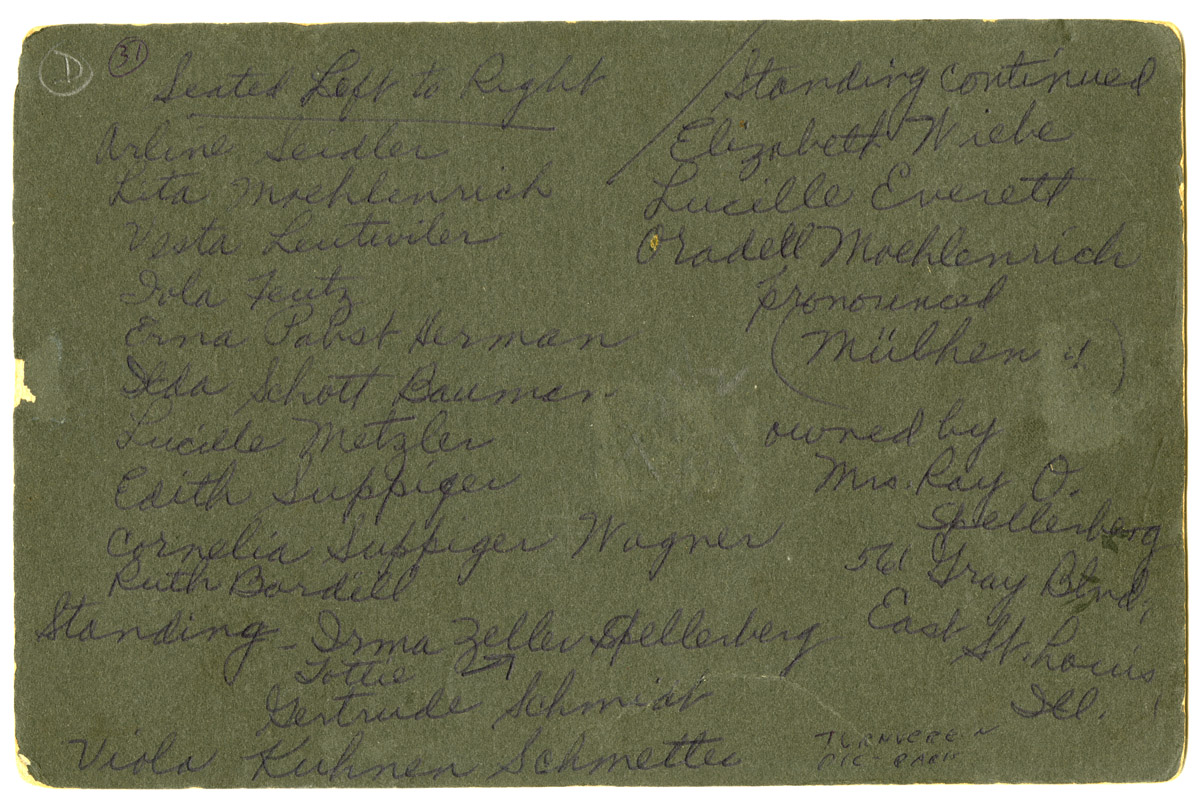 D
31
Seated Left to Right
Arline Seidler
Lita Moehlenrich
Vesta Leutwiler
Iola Feutz
Erna Pabst Herman
Ilda Schott Bauman
Lucille Metzler
Edith Suppiger
Cornelia Suppiger Wagner
Ruth Bardill
Standing - Irma Zeller Spellerberg
Tottie
Gertrude Schmidt
Viola Kuhnen Schmetter
Standing continued
Elizabeth Wiebe
Lucille Everett
Oradell Moehlenrich
pronounced
(Mülhen "!)
owned by
Mrs. Ray O.
Spellerberg
561 Gray Blvd,
East St. Louis
Ill.
TURNVEREN